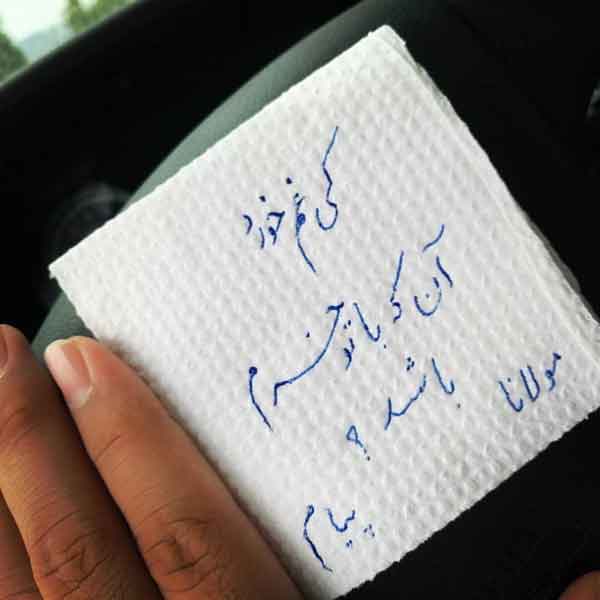 کی غم خورد
آن که با تو خرم
باشد ؟
مولانا
پیام